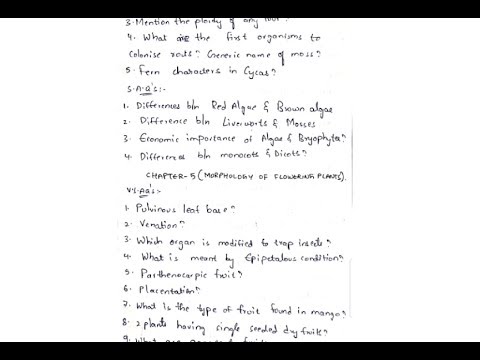 3. Mention the ploidy of any four?
4. What are the first organisms to
colonise rocks? Generic name of moss?
5. Fern characters in Cycas?
S.A.Q's:-
1. Differences b/n Red Algae & Brown algae
2. Difference b/n Liverworts & Mosses
3. Economic importance of Algae & Bryophytes?
4. Differences b/n monocots & Dicots?
CHAPTER-5 (MORPHOLOGY OF FLOWERING PLANTS).
V.S.AQ's:-
1. Pulvinous leaf base?
2. Venation?
3. Which organ is modified to trap insects?
4. What is meant by Epipetalous condition?
5. Parthenocarpic fruit?
6. Placentation?
7. What is the type of fruit found in mango?
8. 2 plants having single seeded dry fruits?
9. What are